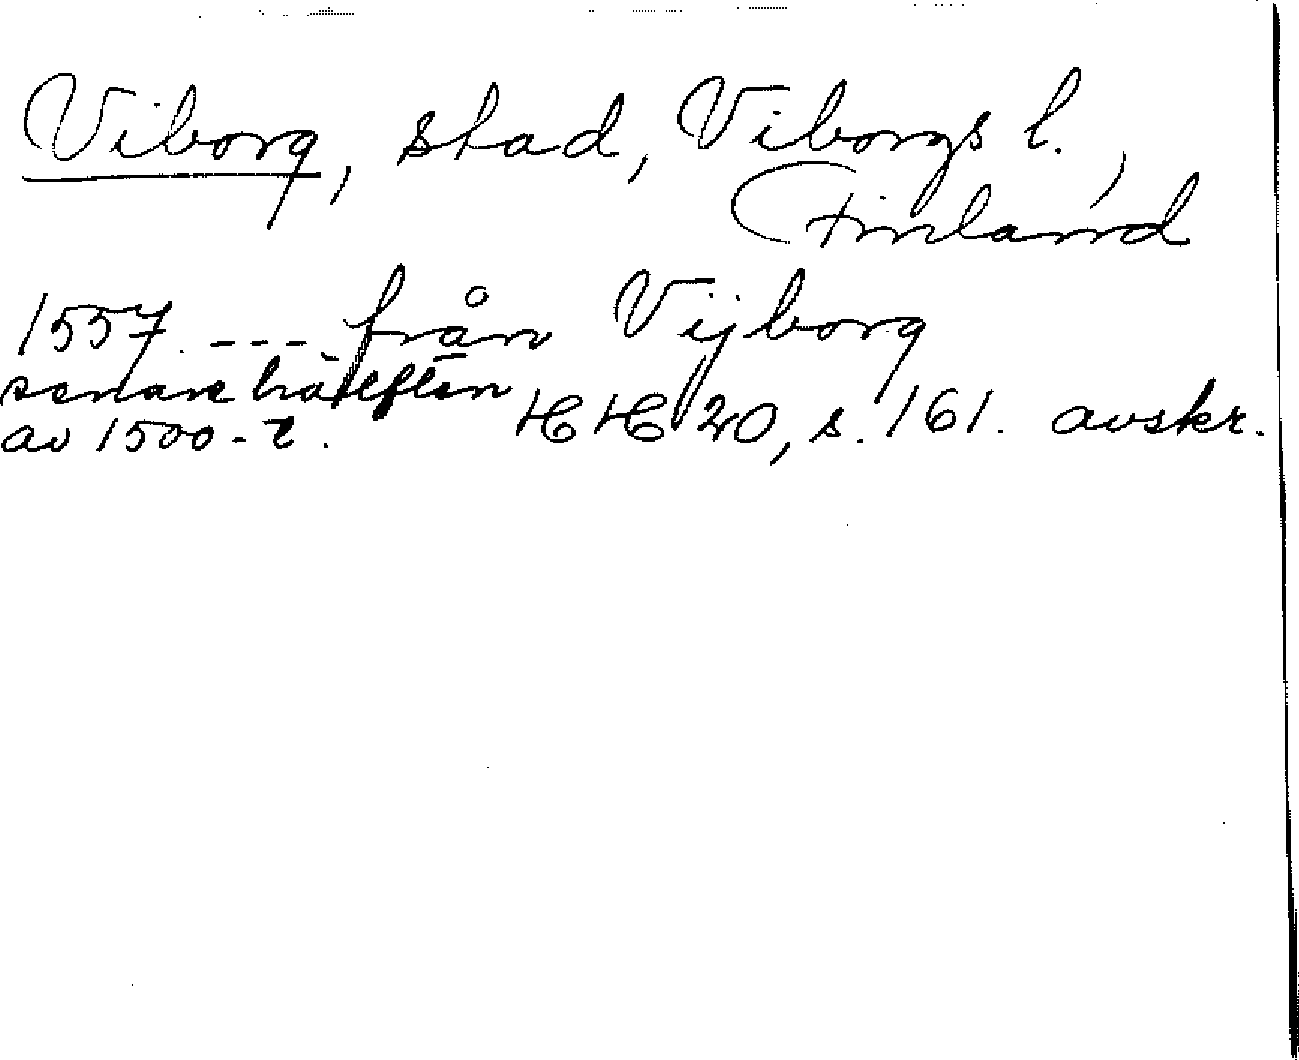 Viborg, stad, Viborgs l.,
Finland
1557. --- från Vijborg
senare hälften HH 20, s. 161. avskr.
av 1500-t.